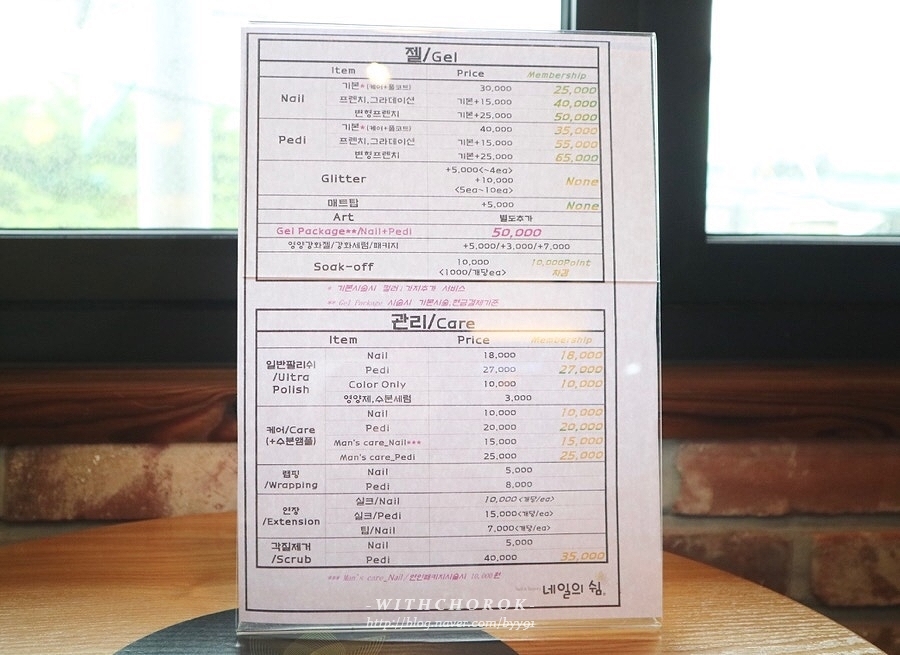 젤/Gel
Item Price Membership
Nail 기본*(케어+풀코트) 30,000 25,000
프렌치,그라데이션 기본+15,000 40,000
변형프렌치 기본+25,000 50,000
Pedi 기본*(케어+풀코트) 40,000 35,000
프렌치,그라데이션 기본+15,000 55,000
변형프렌치 기본+25,000 65,000
Glitter +5,000<~4ea> +10,000 <5ea~10ea> None
매트탑 +5,000 None
Art 별도추가
Gel Package**/Nail+Pedi 50,000
영양강화젤/강화세럼/패키지 +5,000/+3,000/+7,000
Soak-off 10,000 <1000/개당ea> 10,000Point 차감
* 기본시술시 컬러1가지추가 서비스
** Gel Package 시술시 기본시술,현금결제기준
관리/Care
Item Price Membership
일반팔리쉬/Ultra Polish Nail 18,000 18,000
Pedi 27,000 27,000
Color Only 10,000 10,000
영양제,수분세럼 3,000
케어/Care (+수분앰플) Nail 10,000 10,000
Pedi 20,000 20,000
Man's care_Nail*** 15,000 15,000
Man's care_Pedi 25,000 25,000
랩핑/Wrapping Nail 5,000
Pedi 8,000
연장/Extension 실크/Nail 10,000<개당/ea>
실크/Pedi 15,000<개당/ea>
팁/Nail 7,000<개당/ea>
각질제거/Scrub Nail 5,000
Pedi 40,000 35,000
*** Man's care_Nail/연인패키지시술시 10,000원
네일의 쉼
-WITHCHOROK-
http://blog.naver.com/byy91